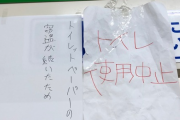 トイレットペーパーの
窃盗が続いたため
トイレ
使用中止